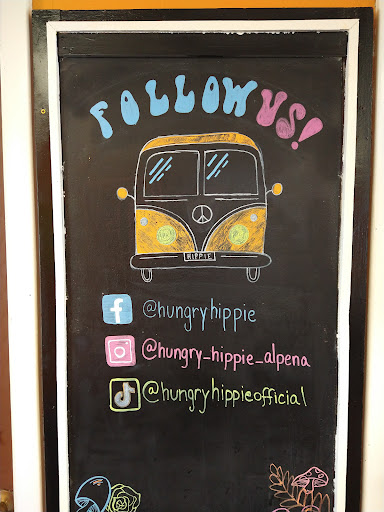 FOLLOW US!
HIPPIE
@hungryhippie
@hungry_hippie_alpena
@hungryhippieofficial